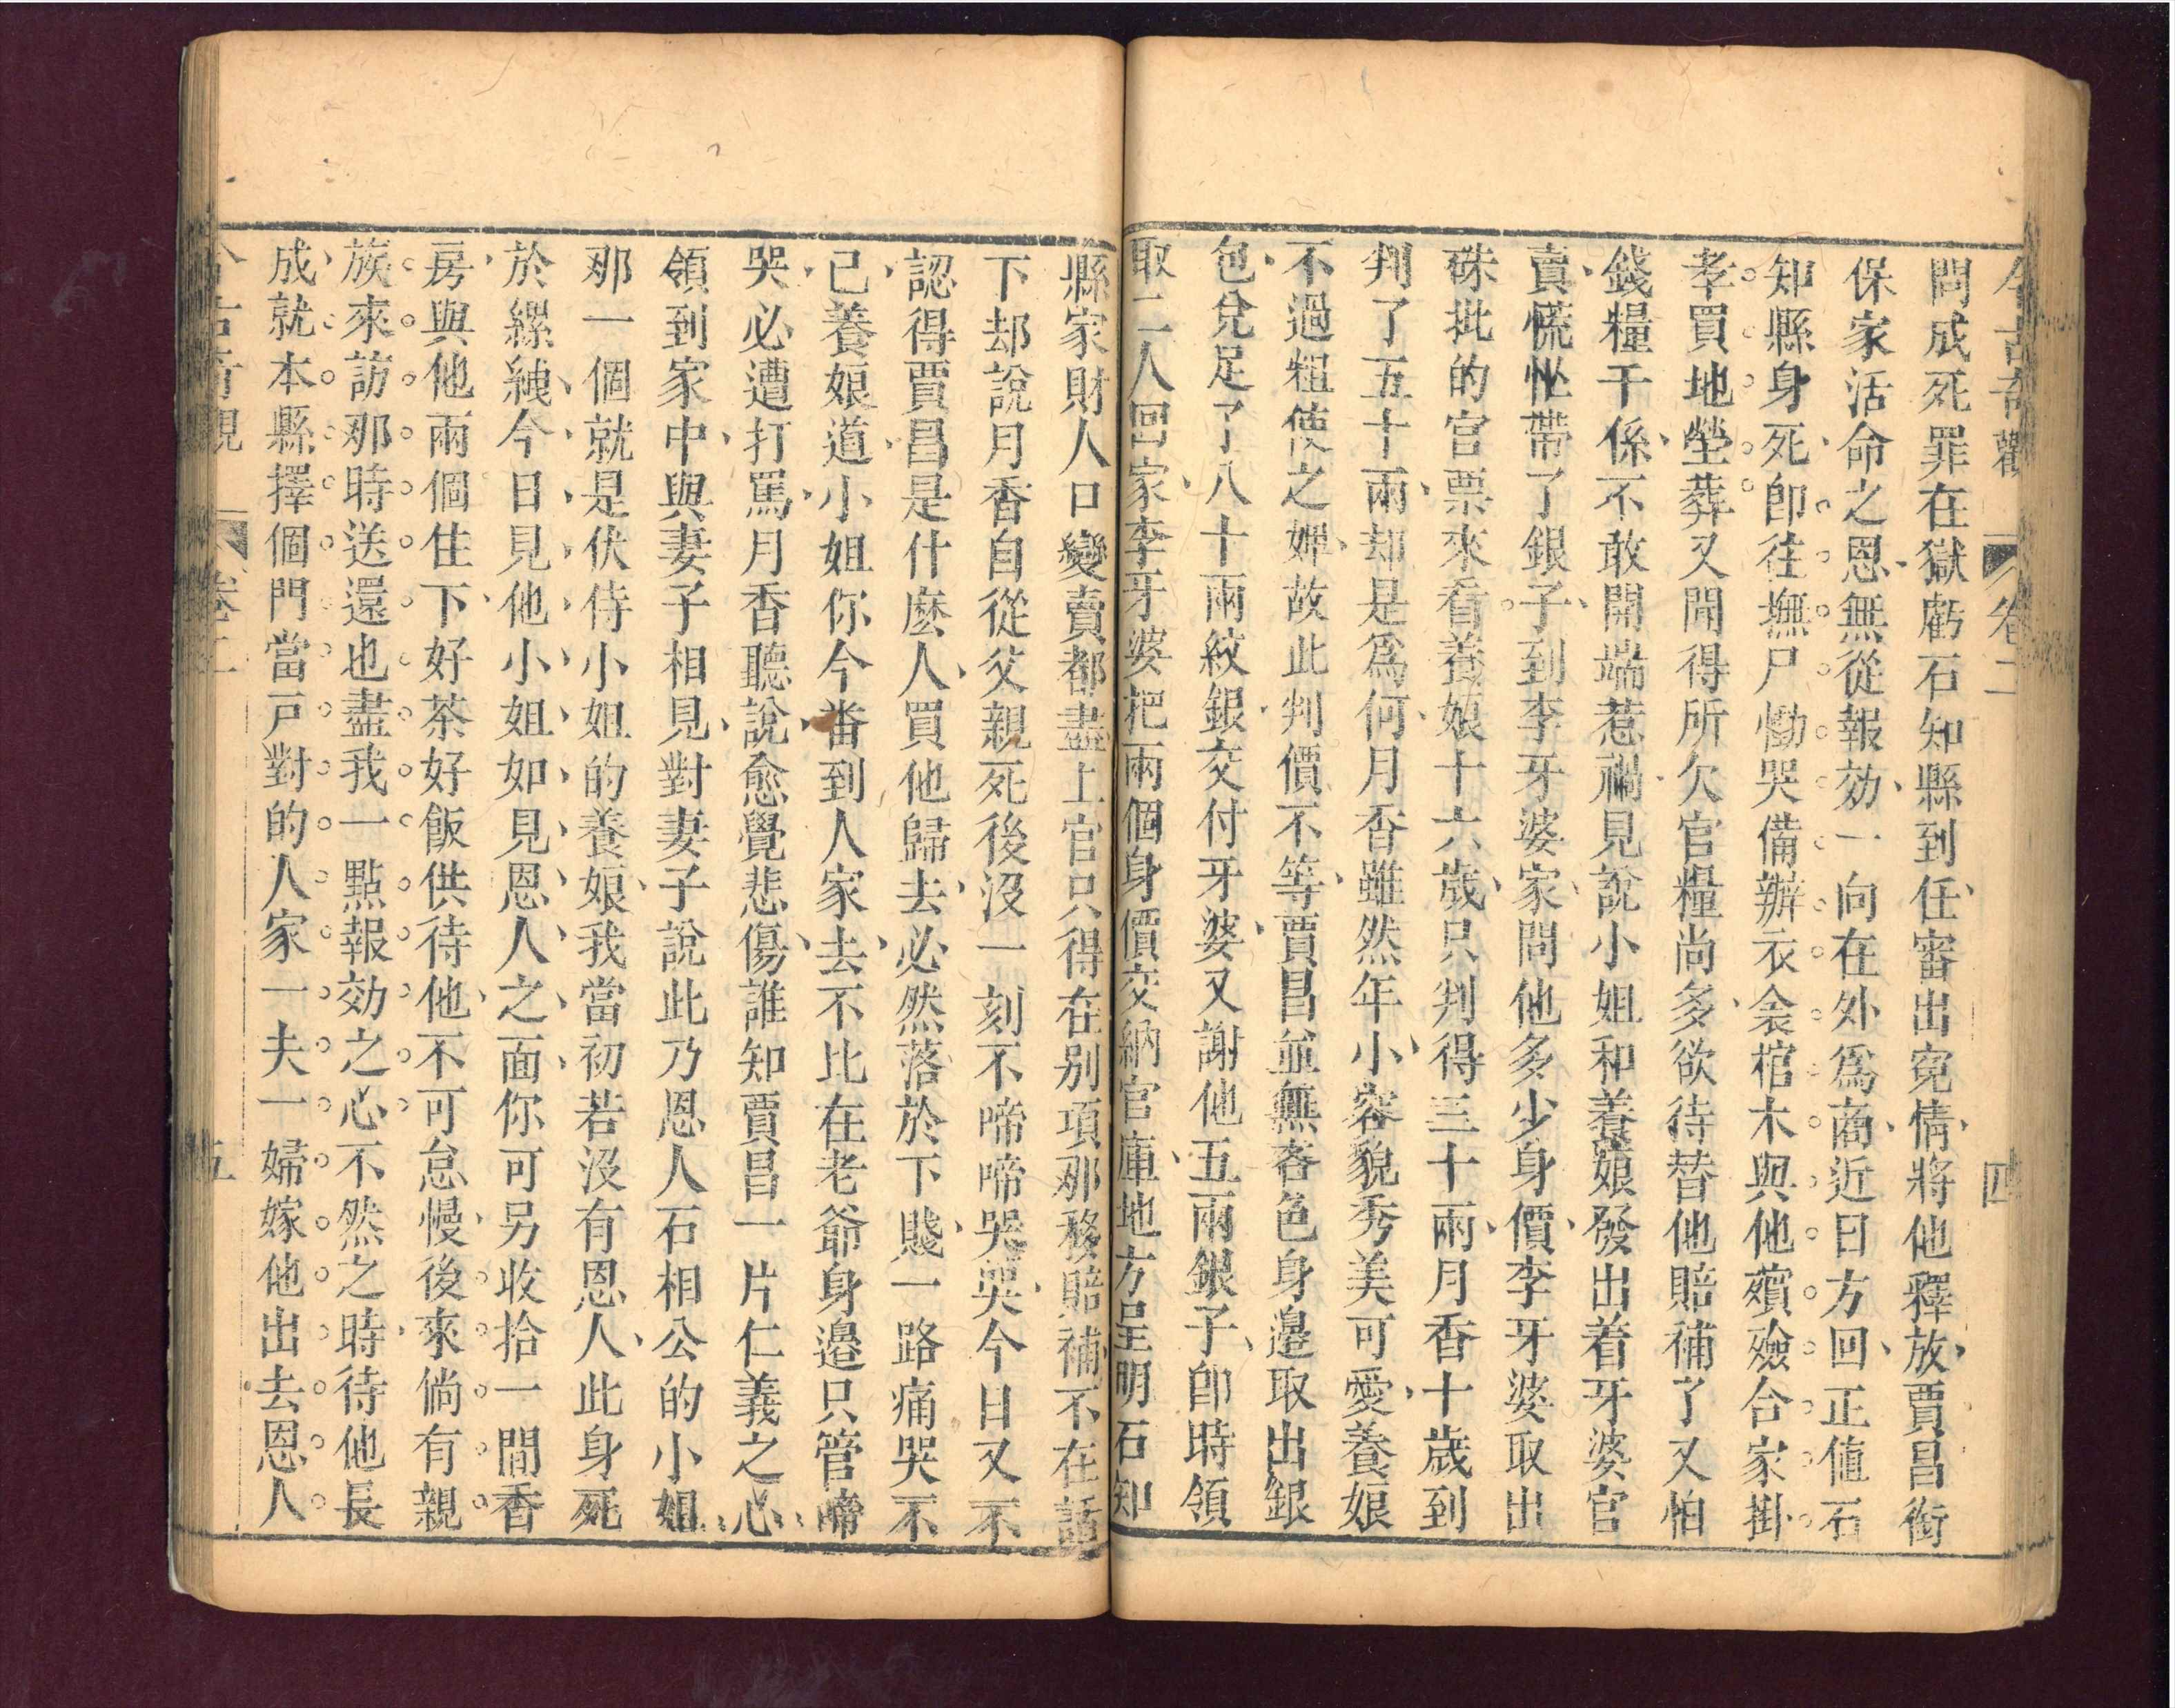 今古奇觀 卷二 四
問成死罪在獄虧石知縣到任審出寃情將他釋放賈昌銜
保家活命之恩無從報効一向在外爲商近日方回正値石
知縣身死卽往撫尸慟哭備辦衣衾棺木與他殯殮合家掛
孝買地塋葬又聞得所欠官糧尚多欲待替他賠補了又怕
錢糧干係不敢開端惹禍見說小姐和養娘發出着牙婆官
賣慌忙帶了銀子到李牙婆家問他多少身價李牙婆取出
硃批的官票來看養娘十六歲只判得三十兩月香十歲到
判了五十兩却是爲何月香雖然年小容貌秀美可愛養娘
不過粗使之婢故此判價不等賈昌並無吝色身邉取出銀
包兌足了八十兩紋銀交付牙婆又謝他五兩銀子卽時領
取二人回家李牙婆把兩個身價交納官庫地方呈明石知
縣家財人口變賣都盡上官只得在别項那移賠補不在話
下却說月香自從父親死後沒一刻不啼啼哭哭今日又不
認得賈昌是什麽人買他歸去必然落於下賤一路痛哭不
已養娘道小姐你今番到人家去不比在老爺身邉只管啼
哭必遭打罵月香聽說愈覺悲傷誰知賈昌一片仁義之心
領到家中與妻子相見對妻子說此乃恩人石相公的小姐
那一個就是伏侍小姐的養娘我當初若沒有恩人此身死
於縲絏今日見他小姐如見恩人之面你可另收拾一間香
房與他兩個住下好茶好飯供待他不可怠慢後來倘有親
族來訪那時送還也盡我一點報効之心不然之時待他長
成就本縣擇個門當戸對的人家一夫一婦嫁他出去恩人
今古奇觀 卷二 五